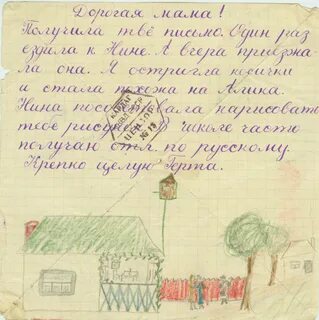 Дорогая мама!
Получила твё письмо. Один раз
ездила к Нине. А вчера приезжа-
ла она. Я остригла косички
и стала похожа на Алика.
Нина посоветовала нарисовать
тебе рисунок. В школе часто
получаю отл. по русскому.
Крепко целую Герта.